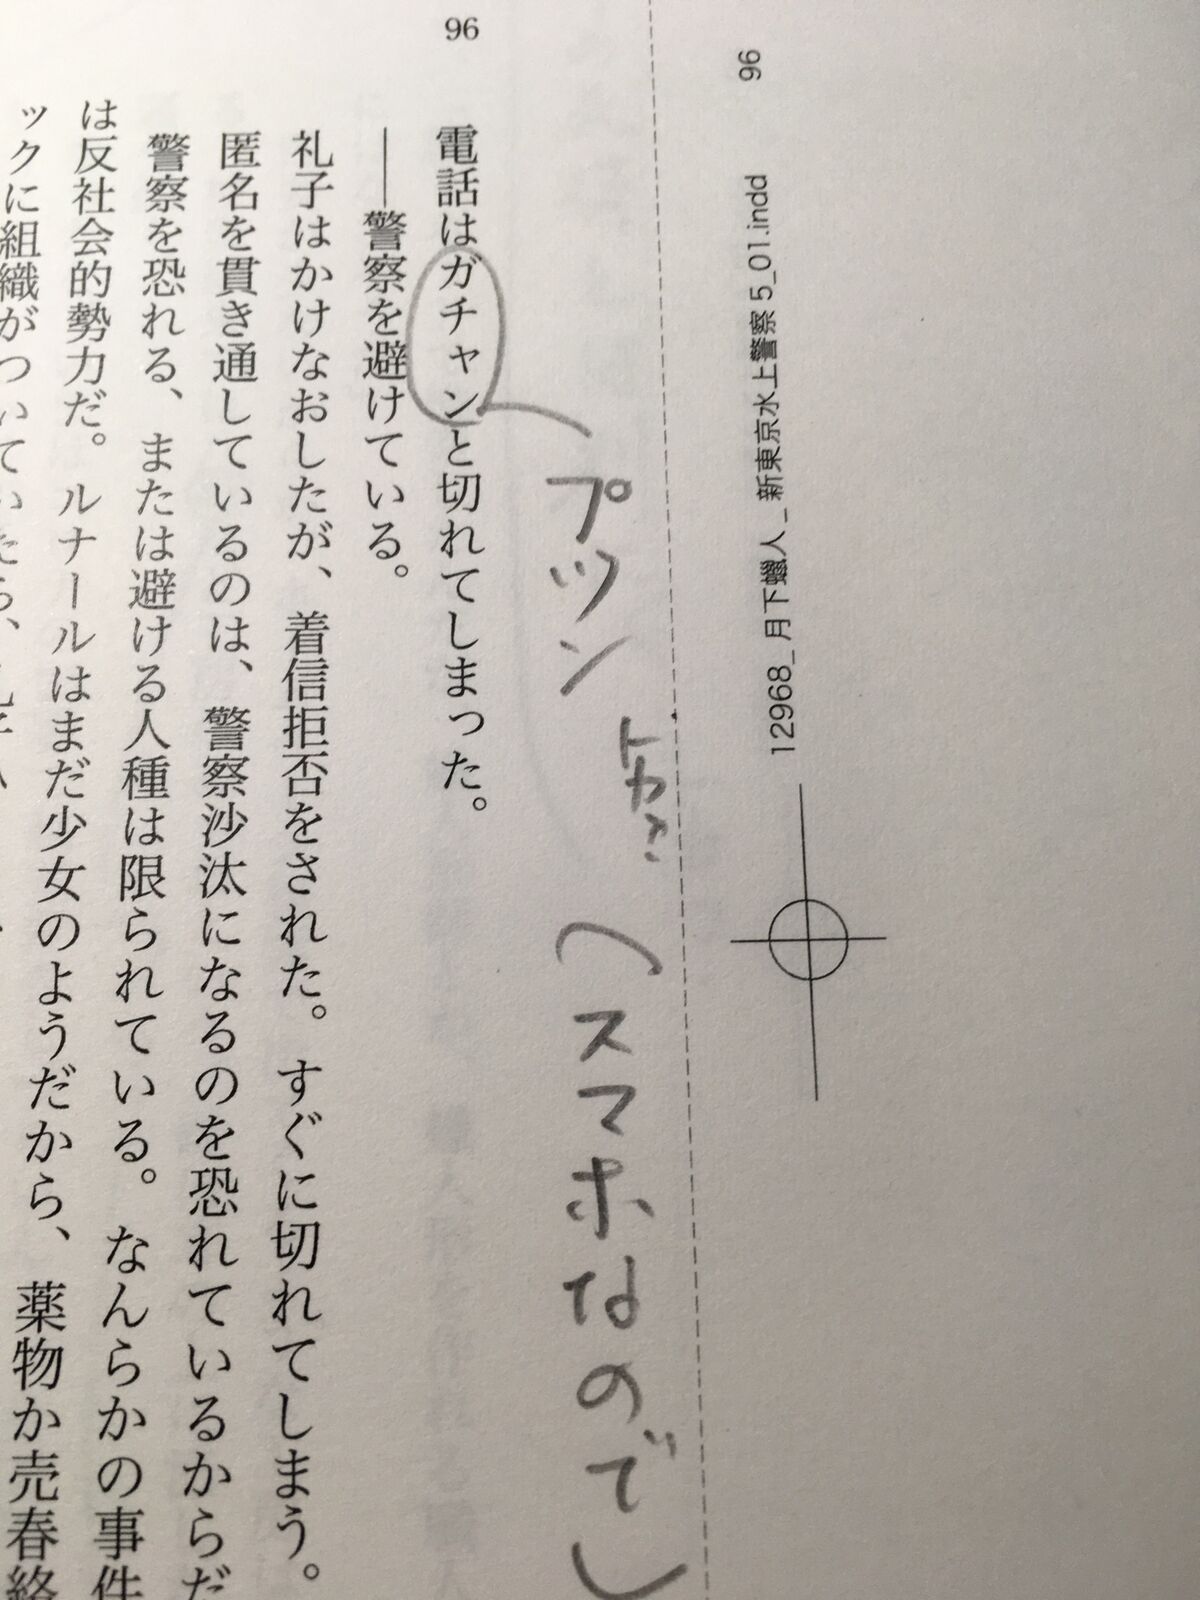 96
12968_月下蠟人_新東京水上警察5_01.indd 96
プツン
トカ?
(スマホなので)
電話はガチャンと切れてしまった。
――警察を避けている。
礼子はかけなおしたが、着信拒否をされた。すぐに切れてしまう。
匿名を貫き通しているのは、警察沙汰になるのを恐れているからだ
警察を恐れる、または避ける人種は限られている。なんらかの事件
は反社会的勢力だ。ルナールはまだ少女のようだから、薬物か売春絡
ックに組織がついていたら、